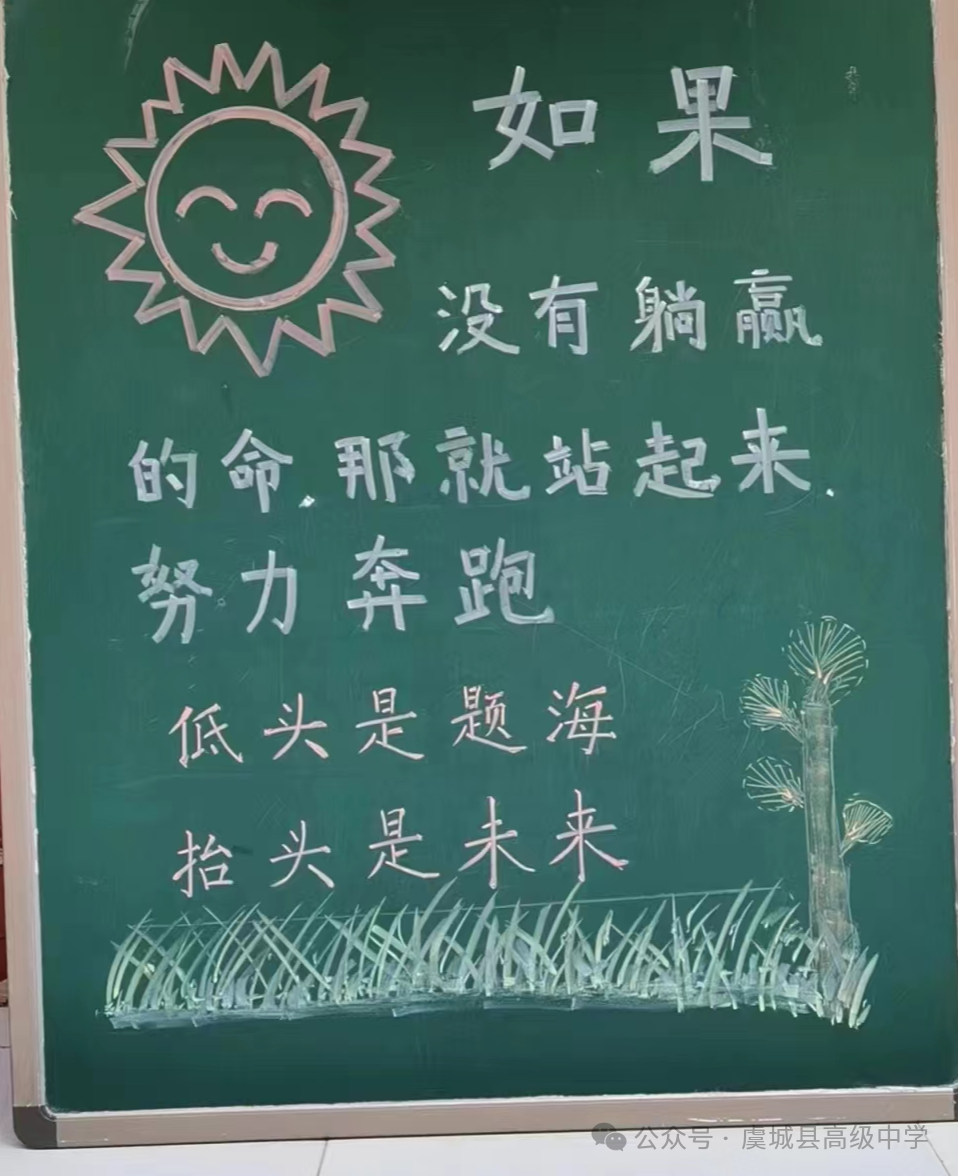 如果
没有躺赢
的命 那就站起来
努力奔跑
低头是题海
抬头是未来
公众号·虞城县高级中学